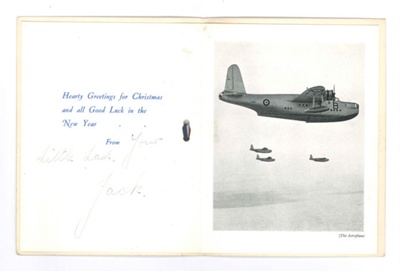 Hearty Greetings for Christmas
and all Good Luck in the
New Year
From Your
Little Lad.
Jack.
(The Aeroplane)